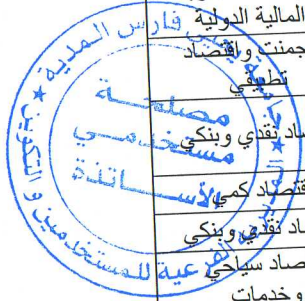 المالية الدولية
جمنت واقتصاد
تطبيقي
اد نقدي وبنكي
قتصاد كمي
اد نقدي وبنكي
صاد سياحي
و خدمات
فارس المدية
مصلحة
مستخدمي
الأساتذة
عية للمستخدمين والتكوين